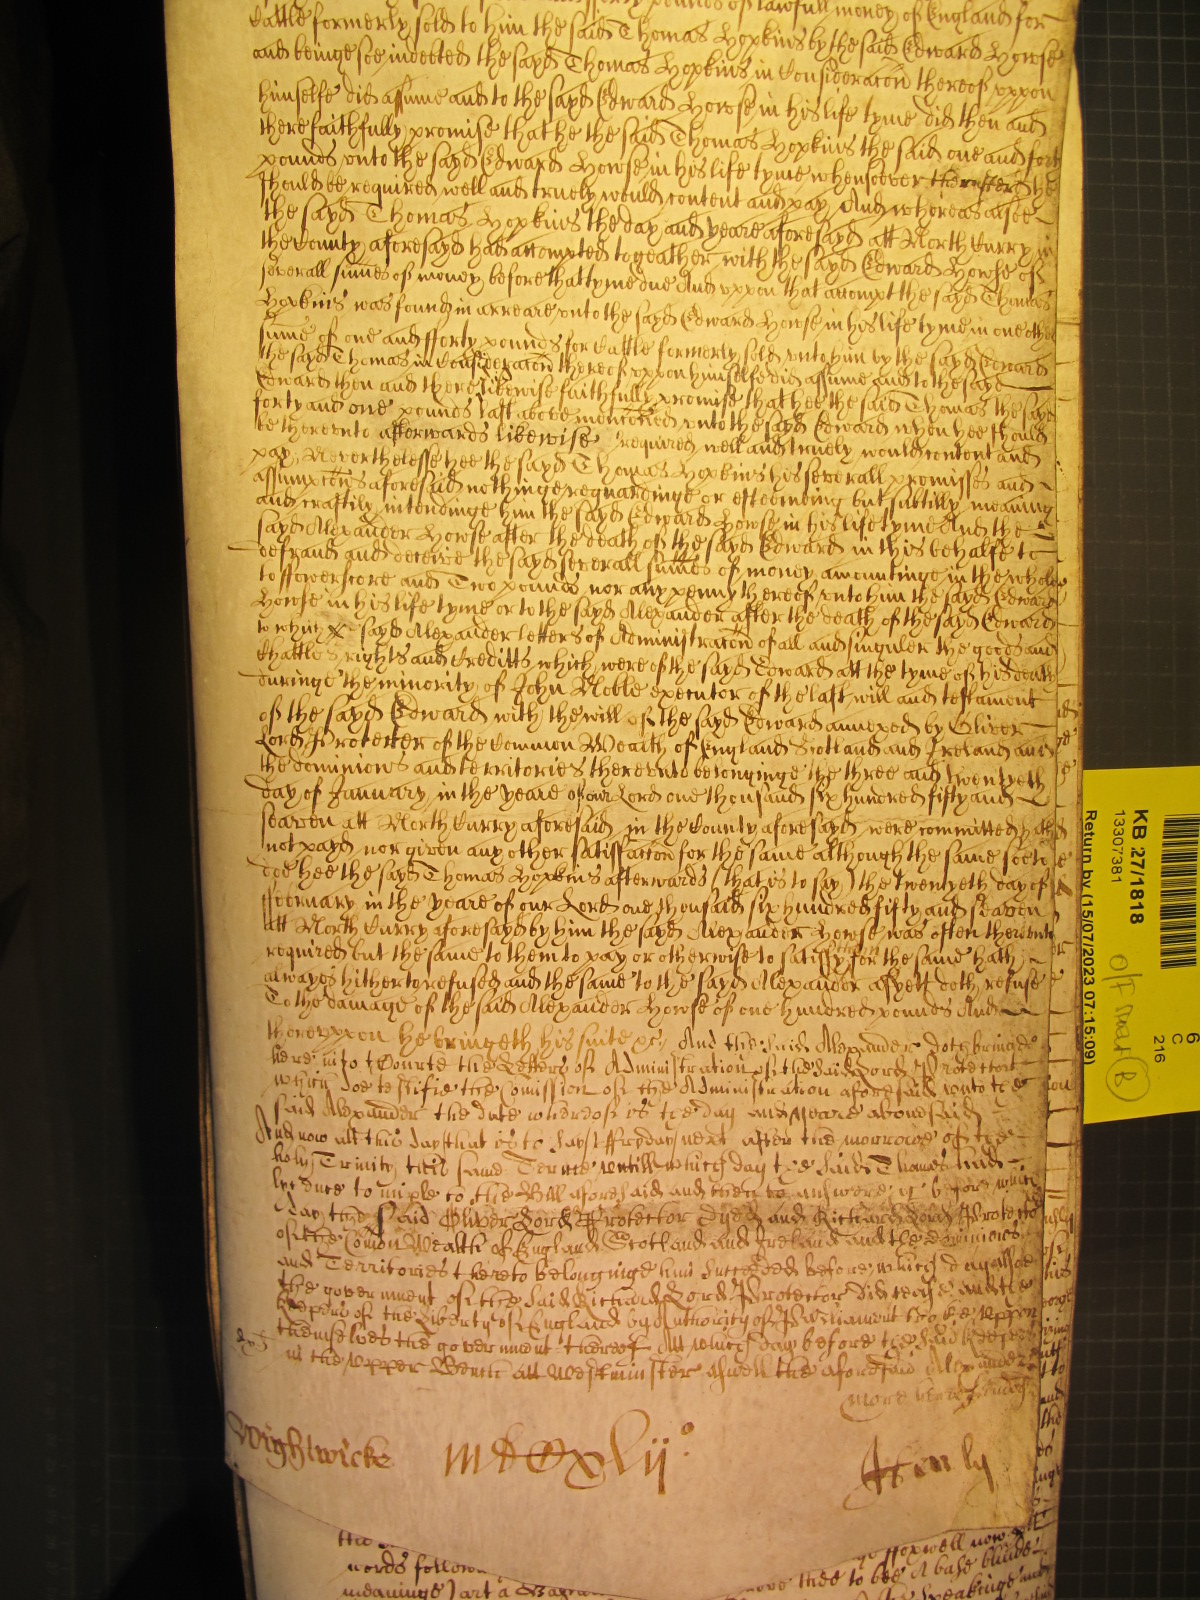 pounds of lawfull money of England for
Cattle formerly sold to him the said Thomas Hopkins by the said Edward Howse
and beinge soe indebted the sayd Thomas Hopkins in Consideracon thereof uppon
himselfe did assume and to the sayd Edward Howse in his life tyme did then and
there faithfully promise that he the said Thomas Hopkins the said one and forty
pounds unto the sayd Edward Howse in his life tyme whensoever thereafter he
should be required well and truely would content and pay And whereas alsoe
the sayd Thomas Hopkins the day and yeare aforesayd att North Curry in
the County aforesayd had accompted togeather with the sayd Edward Howse of
severall sumes of money before that tyme due And uppon that accompt the sayd Thomas
Hopkins was found in arreare unto the sayd Edward Howse in his life tyme in one other
sume of one and fforty pounds for Cattle formerly sold unto him by the sayd Edward
the sayd Thomas in Consideracon thereof uppon himselfe did assume and to the sayd
Edward then and there likewise faithfully promise that hee the said Thomas the sayd
forty and one pounds last above menconed unto the sayd Edward when hee should
be thereunto afterwards likewise required well and truely would content and
pay Neverthelesse hee the sayd Thomas Hopkins his severall promisses and
assumptons aforesaid nothinge reguardinge or esteeminge but subtilly meaning
and craftily intendinge him the sayd Edward Howse in his life tyme And the
sayd Alexander Howse after the death of the sayd Edward in this behalfe to
defraud and deceive the sayd severall sumes of money amountinge in the whole
to ffowerscore and Two pounds nor any penny thereof unto him the sayd Edward
Howse in his life tyme or to the sayd Alexander after the death of the sayd Edward
to which sayd Alexander letters of Administracon of all and singuler the goods and
Chattles rights and Creditts which were of the sayd Edward att the tyme of his death
duringe the minority of John Noble executor of the last will and testament
of the sayd Edward with the will of the sayd Edward annexed by Oliver
Lord Protector of the Common Wealth of England Scotland and Ireland and
the dominions and territories thereunto belonginge the three and twentyeth
day of January in the yeare of our Lord one thousand six hundred fifty and
seaven att North Curry aforesaid in the County aforesayd were committed hath
not payd nor given any other satisfaction for the same although the same soe to
doe hee the sayd Thomas Hopkins afterwards (that is to say) the twentyeth day of
ffebruary in the yeare of our Lord one thousand six hundred fifty and seaven
att North Curry aforesayd by him the sayd Alexander Howse was often thereunto
required but the same to them to pay or otherwise to satisfy for the same hath
alwayes hitherto refused and the same to the sayd Alexander as yett doth refuse
To the damage of the said Alexander Howse of one hundred pounds And
thereuppon he bringeth his suite &c And the said Alexander doth bringe
here into Courte the Letters of Administration of the said Lord Protector
which doe testifie the Comission of the Administration aforesaid unto the
said Alexander the date whereof is the day and yeare abovesaid
And now att this day that is to say ffryday next after the morrowe of the
holy Trinity this same Terme untill which day the said Thomas had
lycence to imple to the Bill aforesaid and then to answere &c before which
day the said Oliver Lord Protector dyed and Richard Lord Protector
of the Comon Wealth of England Scotland and Ireland and the dominions
and Territories thereto belonginge him succeeded before which day alsoe
the government of the said Richard Lord Protector did cease and the
Keepers of the Liberty of England by Authority of Parliament tooke uppon
themselves the government thereof Att which day before the said Keepers
in the upper Bench att Westminster aswell the aforesaid Alexander
Wightwicke mdcxlij° Henly
ffoxwell now
words follow thee to bee A base
meaninge) art a speakinge
KB 27/1818
13307381
Return by (15/07/2023 07:15:09)
6
C
216
off mat B